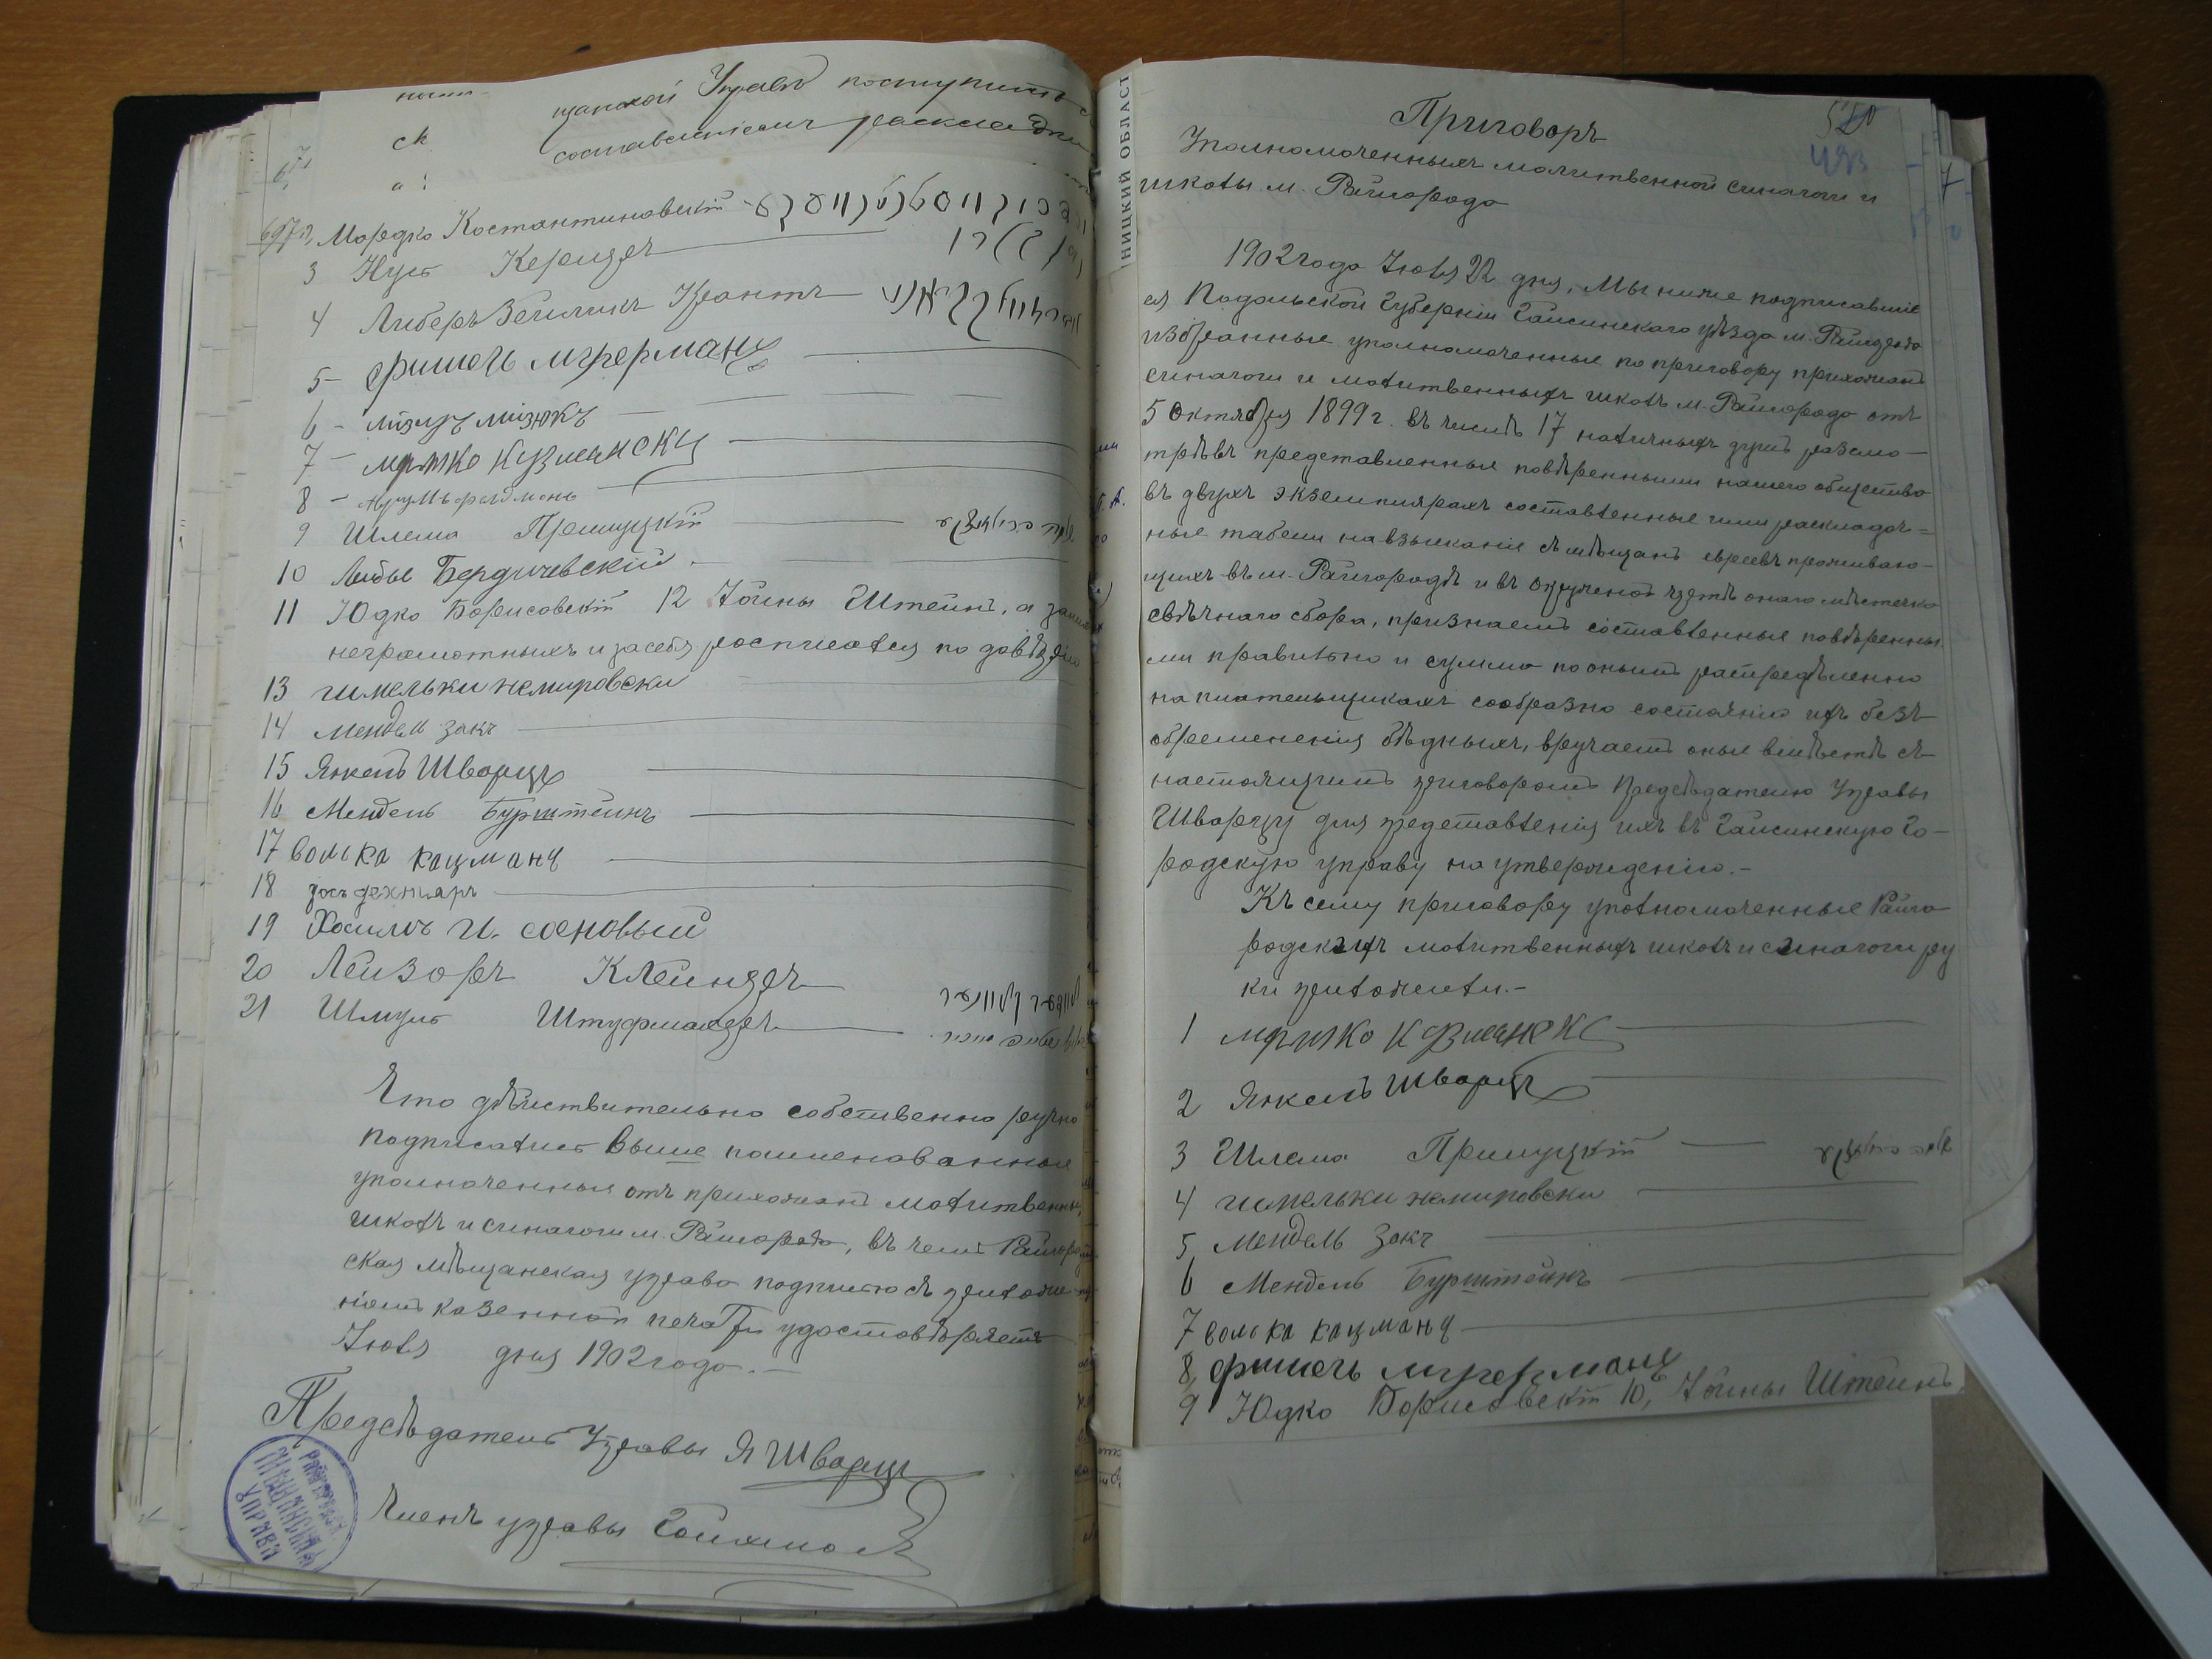 щанской Управѣ поступить с
составленіемъ раскладки
697 2, Мордко Костантиновскій
3 Нусъ Кержнеръ
4 Либеръ Зейликъ Крантъ
5 – фишель мгрерманъ
6 –
7 –
8 –
9 Шлема Прилуцкій
10 Лейбъ Бердичевскій
11 Юдко Борисовскій 12 Іойны Штейнъ, а за
неграмотныхъ и за себя росписался по довѣрію
13 шмельки немировски
14 мендел закъ
15 Янкель Шварцъ
16 Мендель Бурштейнъ
17 волька кацманъ
18
19 Хаимъ И. сосновый
20 Лейзоръ Клейнеръ
21 Шмуль
Что дѣйствительно собственно ручно
подписались выше поименованные
уполноченные отъ прихожанъ молитвенн.
школъ и синагоги м. Райгорода, въ чемъ Райгород
ская мѣщанская управа подписью съ приложе
ніемъ казенной печати удостовѣряетъ
Іюля дня 1902 года. –
Предсѣдатель Управы Я Шварцъ
Членъ управы
МѢЩАНСКАЯ
УПРАВА
ННИЦКИЙ ОБЛАСТ
520
Приговоръ
Уполномоченныхъ молитвенной синагоги и
школы м. Райгорода
1902 года Іюля 22 дня, Мы ниже подписавшіе
ся Подольской Губерніи Гайсинскаго уѣзда м. Райгорода
избранные уполномоченные по приговору прихожанъ
синагоги и молитвенныхъ школъ м. Райгорода отъ
5 Октября 1899 г. въ числѣ 17 наличныхъ душъ разсмо –
трѣвъ представленные повѣренными нашего общества
въ двухъ экземплярахъ составленные ими раскладоч =
ные табели на взысканіе съ мѣщанъ евреевъ проживаю –
щихъ въ м. Райгородѣ и въ окружной чертѣ онаго мѣстечка
свѣчнаго сбора, признаемъ составленные повѣренны
ми правильно и сумма по онымъ распредѣленно
на плательщикахъ сообразно состоянію ихъ безъ
обременения бѣдныхъ, вручаемъ оные вмѣстѣ съ
настоящимъ приговоромъ Предсѣдателю Управы
Шварцу для представленія ихъ въ Гайсинскую Го –
родскую управу на утвержденію. –
Къ сему приговору уполномоченные Райго
родскихъ молитвенныхъ школъ и синагоги ру
ки приложили. –
1
2 Янкель Шварцъ
3 Шлема Прилуцкій
4 шмельки немировски
5, Мендель Закъ
6 Мендель Бурштейнъ
7 волька кацманъ
8, фишель мгрерманъ
9 Юдко Борисовскій 10, Іойны Штейнъ